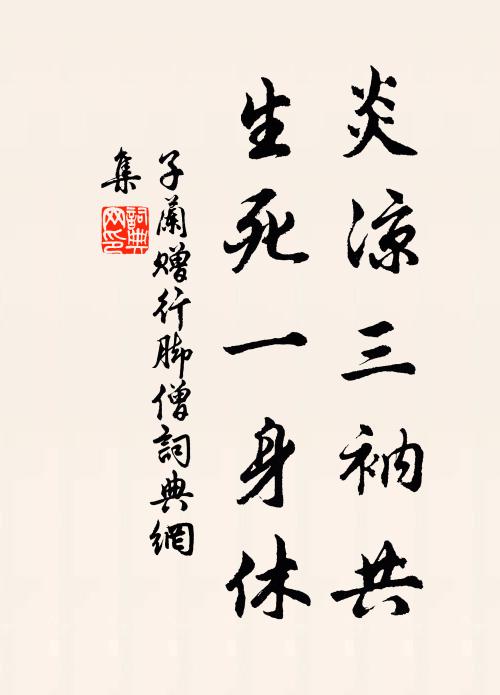 炎涼三衲共
生死一身休
子蘭贈行脚僧詞典網
集
詞典
网印